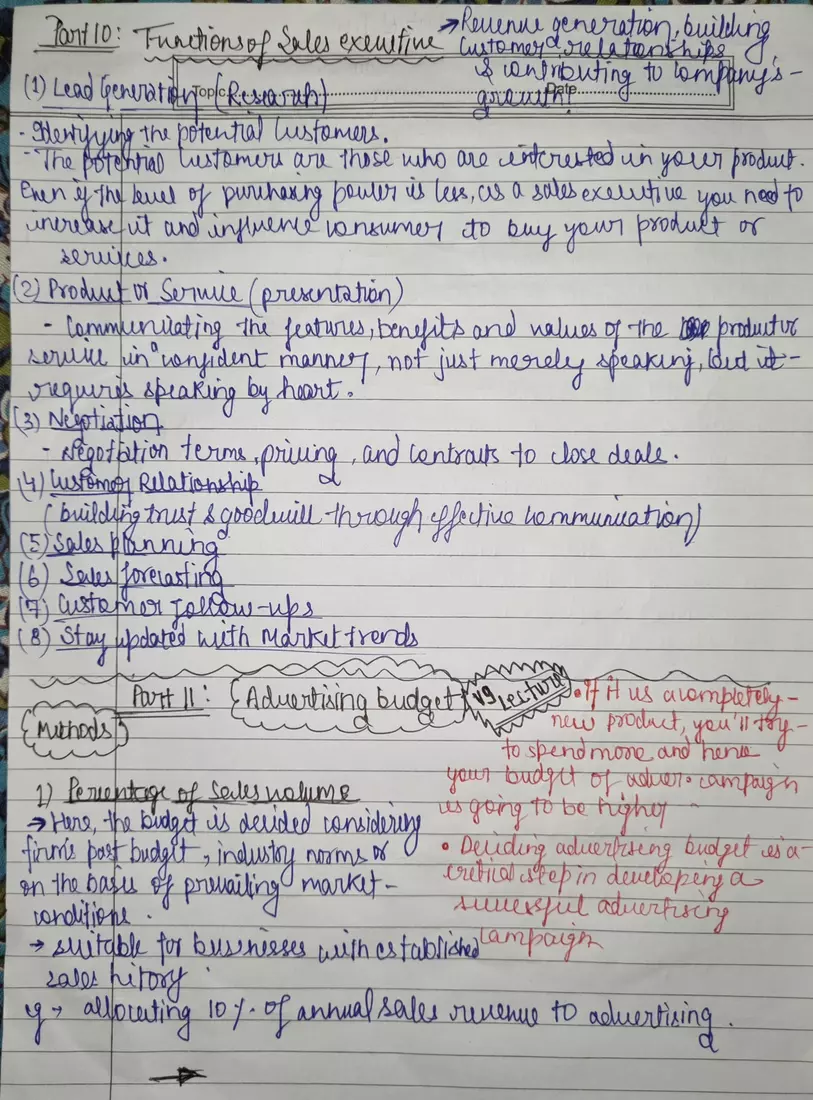 Part 10: Functions of Sales executive → Revenue generation, building
customer relationships
& contributing to company's
growth!
Topic Date
(1) Lead Generation (Research)
- Identifying the potential customers.
- The potential customers are those who are interested in your product.
Even if the level of purchasing power is less, as a sales executive you need to
increase it and influence consumer to buy your product or
services.
(2) Product or Service (presentation)
- Communicating the features, benefits and values of the product or
service in a confident manner, not just merely speaking, but it
requires speaking by heart.
(3) Negotiation
- Negotiation terms, pricing, and contracts to close deals.
(4) Customer Relationship
(building trust & goodwill through effective communication)
(5) Sales planning
(6) Sales forecasting
(7) Customer follow-ups
(8) Stay updated with market trends
Part 11: Advertising budget V9 Lecture
Methods
• If it is a completely
new product, you'll try
to spend more and hence
your budget of adver. campaign
is going to be higher
• Deciding advertising budget is a
critical step in developing a
successful advertising
campaign
1) Percentage of sales volume
→ Here, the budget is decided considering
firm's past budget, industry norms or
on the basis of prevailing market
conditions.
→ suitable for businesses with established
sales hitory
eg → allocating 10% of annual sales revenue to advertising.
→